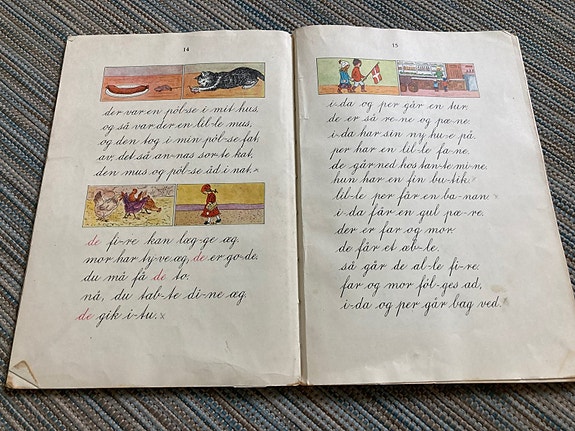 14
der var en pöl-se i mit hus,
og så var der en lil-le mus,
og den tog i min pöl-se fat,
av, det så an-nas sor-te kat,
den mus og pöl-se åd i nat. x
de fi-re kan læg-ge æg.
mor har ty-ve æg, de er go-de.
du må få de to.
nå, du tab-te di-ne æg,
de gik i-tu. x
15
i-da og per går en tur,
de er så re-ne og pæ-ne.
i-da har sin ny hu-e på.
per har en lil-le fa-ne.
de går ned hos tan-te mi-ne.
hun har en fin bu-tik.
lil-le per får en ba-nan.
i-da får en gul pæ-re.
der er far og mor
de får et æb-le.
så går de al-le fi-re.
far og mor föl-ges ad,
i-da og per går bag ved. x